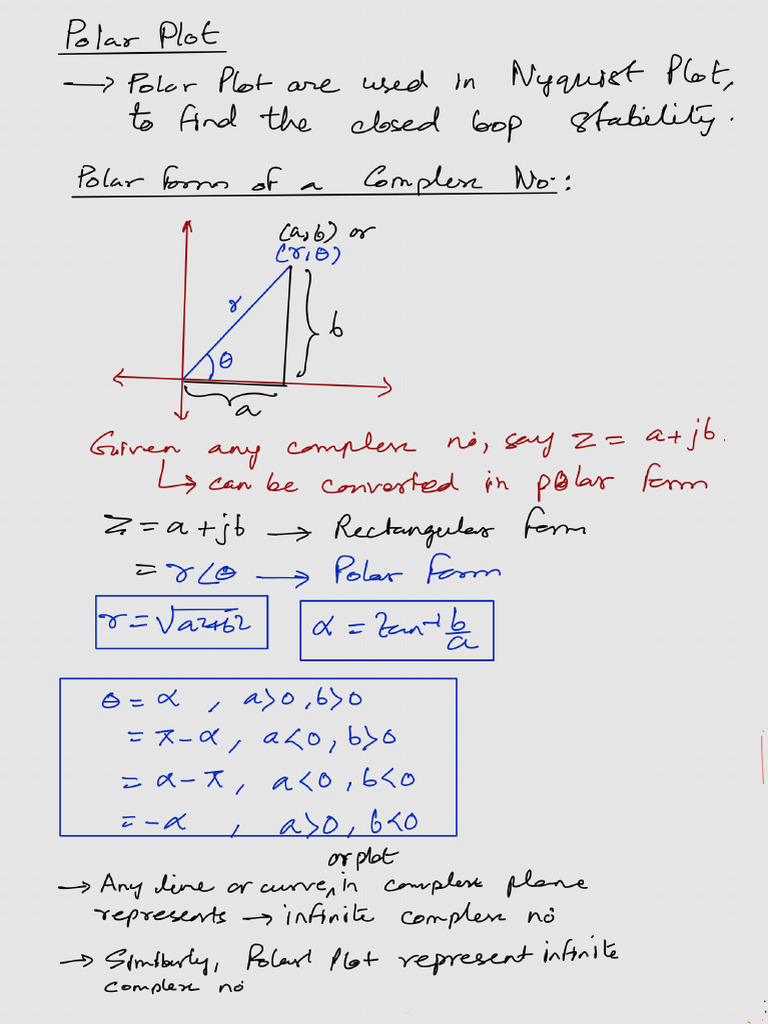 Polar Plot
→ Polar Plot are used in Nyquist Plot,
to find the closed loop stability.
Polar form of a Complex No.:
(a,b) or
(r,θ)
r
θ
b
a
Given any complex no, say z = a+jb.
↳ can be converted in polar form
Z = a+jb → Rectangular form
= r∠θ → Polar Form
r = √a²+b²
α = tan⁻¹ b/a
θ = α , a>0, b>0
= π-α, a<0, b>0
= α-π, a<0, b<0
= -α , a>0, b<0
or plot
→ Any line or curve, in complex plane
represents → infinite complex no
→ Similarly, Polar Plot represent infinite
complex no